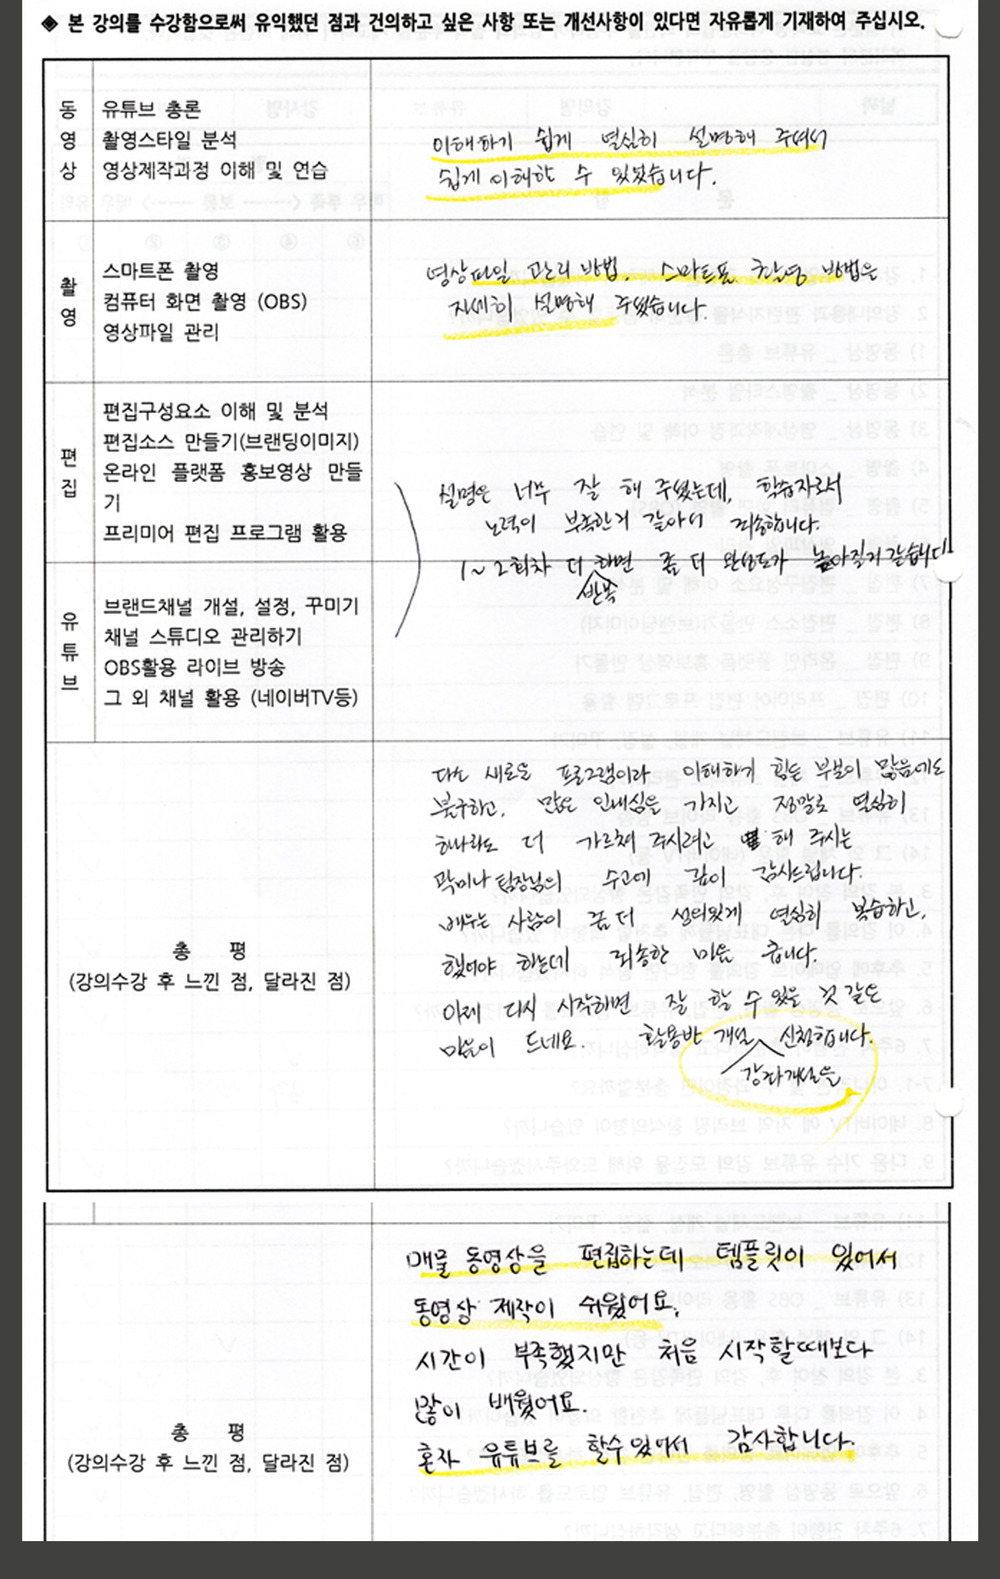 ◈ 본 강의를 수강함으로써 유익했던 점과 건의하고 싶은 사항 또는 개선사항이 있다면 자유롭게 기재하여 주십시오.
동영상
유튜브 총론
촬영스타일 분석
영상제작과정 이해 및 연습
이해하기 쉽게 열심히 설명해 주셔서
쉽게 이해할 수 있었습니다.
촬영
스마트폰 촬영
컴퓨터 화면 촬영 (OBS)
영상파일 관리
영상파일 관리 방법, 스마트폰 촬영 방법은
자세히 설명해 주셨습니다.
편집
편집구성요소 이해 및 분석
편집소스 만들기(브랜딩이미지)
온라인 플랫폼 홍보영상 만들
기
프리미어 편집 프로그램 활용
설명은 너무 잘 해 주셨는데, 학습자로서
노력이 부족한거 같아 죄송합니다.
1~2회차 더 반복하면 좀 더 완성도가 높아질거 같습니다
유튜브
브랜드채널 개설, 설정, 꾸미기
채널 스튜디오 관리하기
OBS활용 라이브 방송
그 외 채널 활용 (네이버TV등)
총 평
(강의수강 후 느낀 점, 달라진 점)
다소 새로운 프로그램이라 이해하기 힘든 부분이 많음에도
불구하고, 많은 인내심을 가지고 정말로 열심히
하나라도 더 가르쳐 주시려고 해 주시는
곽미나 팀장님의 수고에 깊이 감사드립니다.
배우는 사람이 좀 더 성의있게 열심히 복습하고,
했어야 하는데 죄송한 마음 큽니다.
이제 다시 시작하면 잘 할 수 있을 것 같은
마음이 드네요. 활용반 개설 강좌개설을 신청합니다.
매물 동영상을 편집하는데 템플릿이 있어서
동영상 제작이 쉬웠어요.
시간이 부족했지만 처음 시작할때보다
많이 배웠어요.
혼자 유튜브를 할수있어서 감사합니다.
총 평
(강의수강 후 느낀 점, 달라진 점)